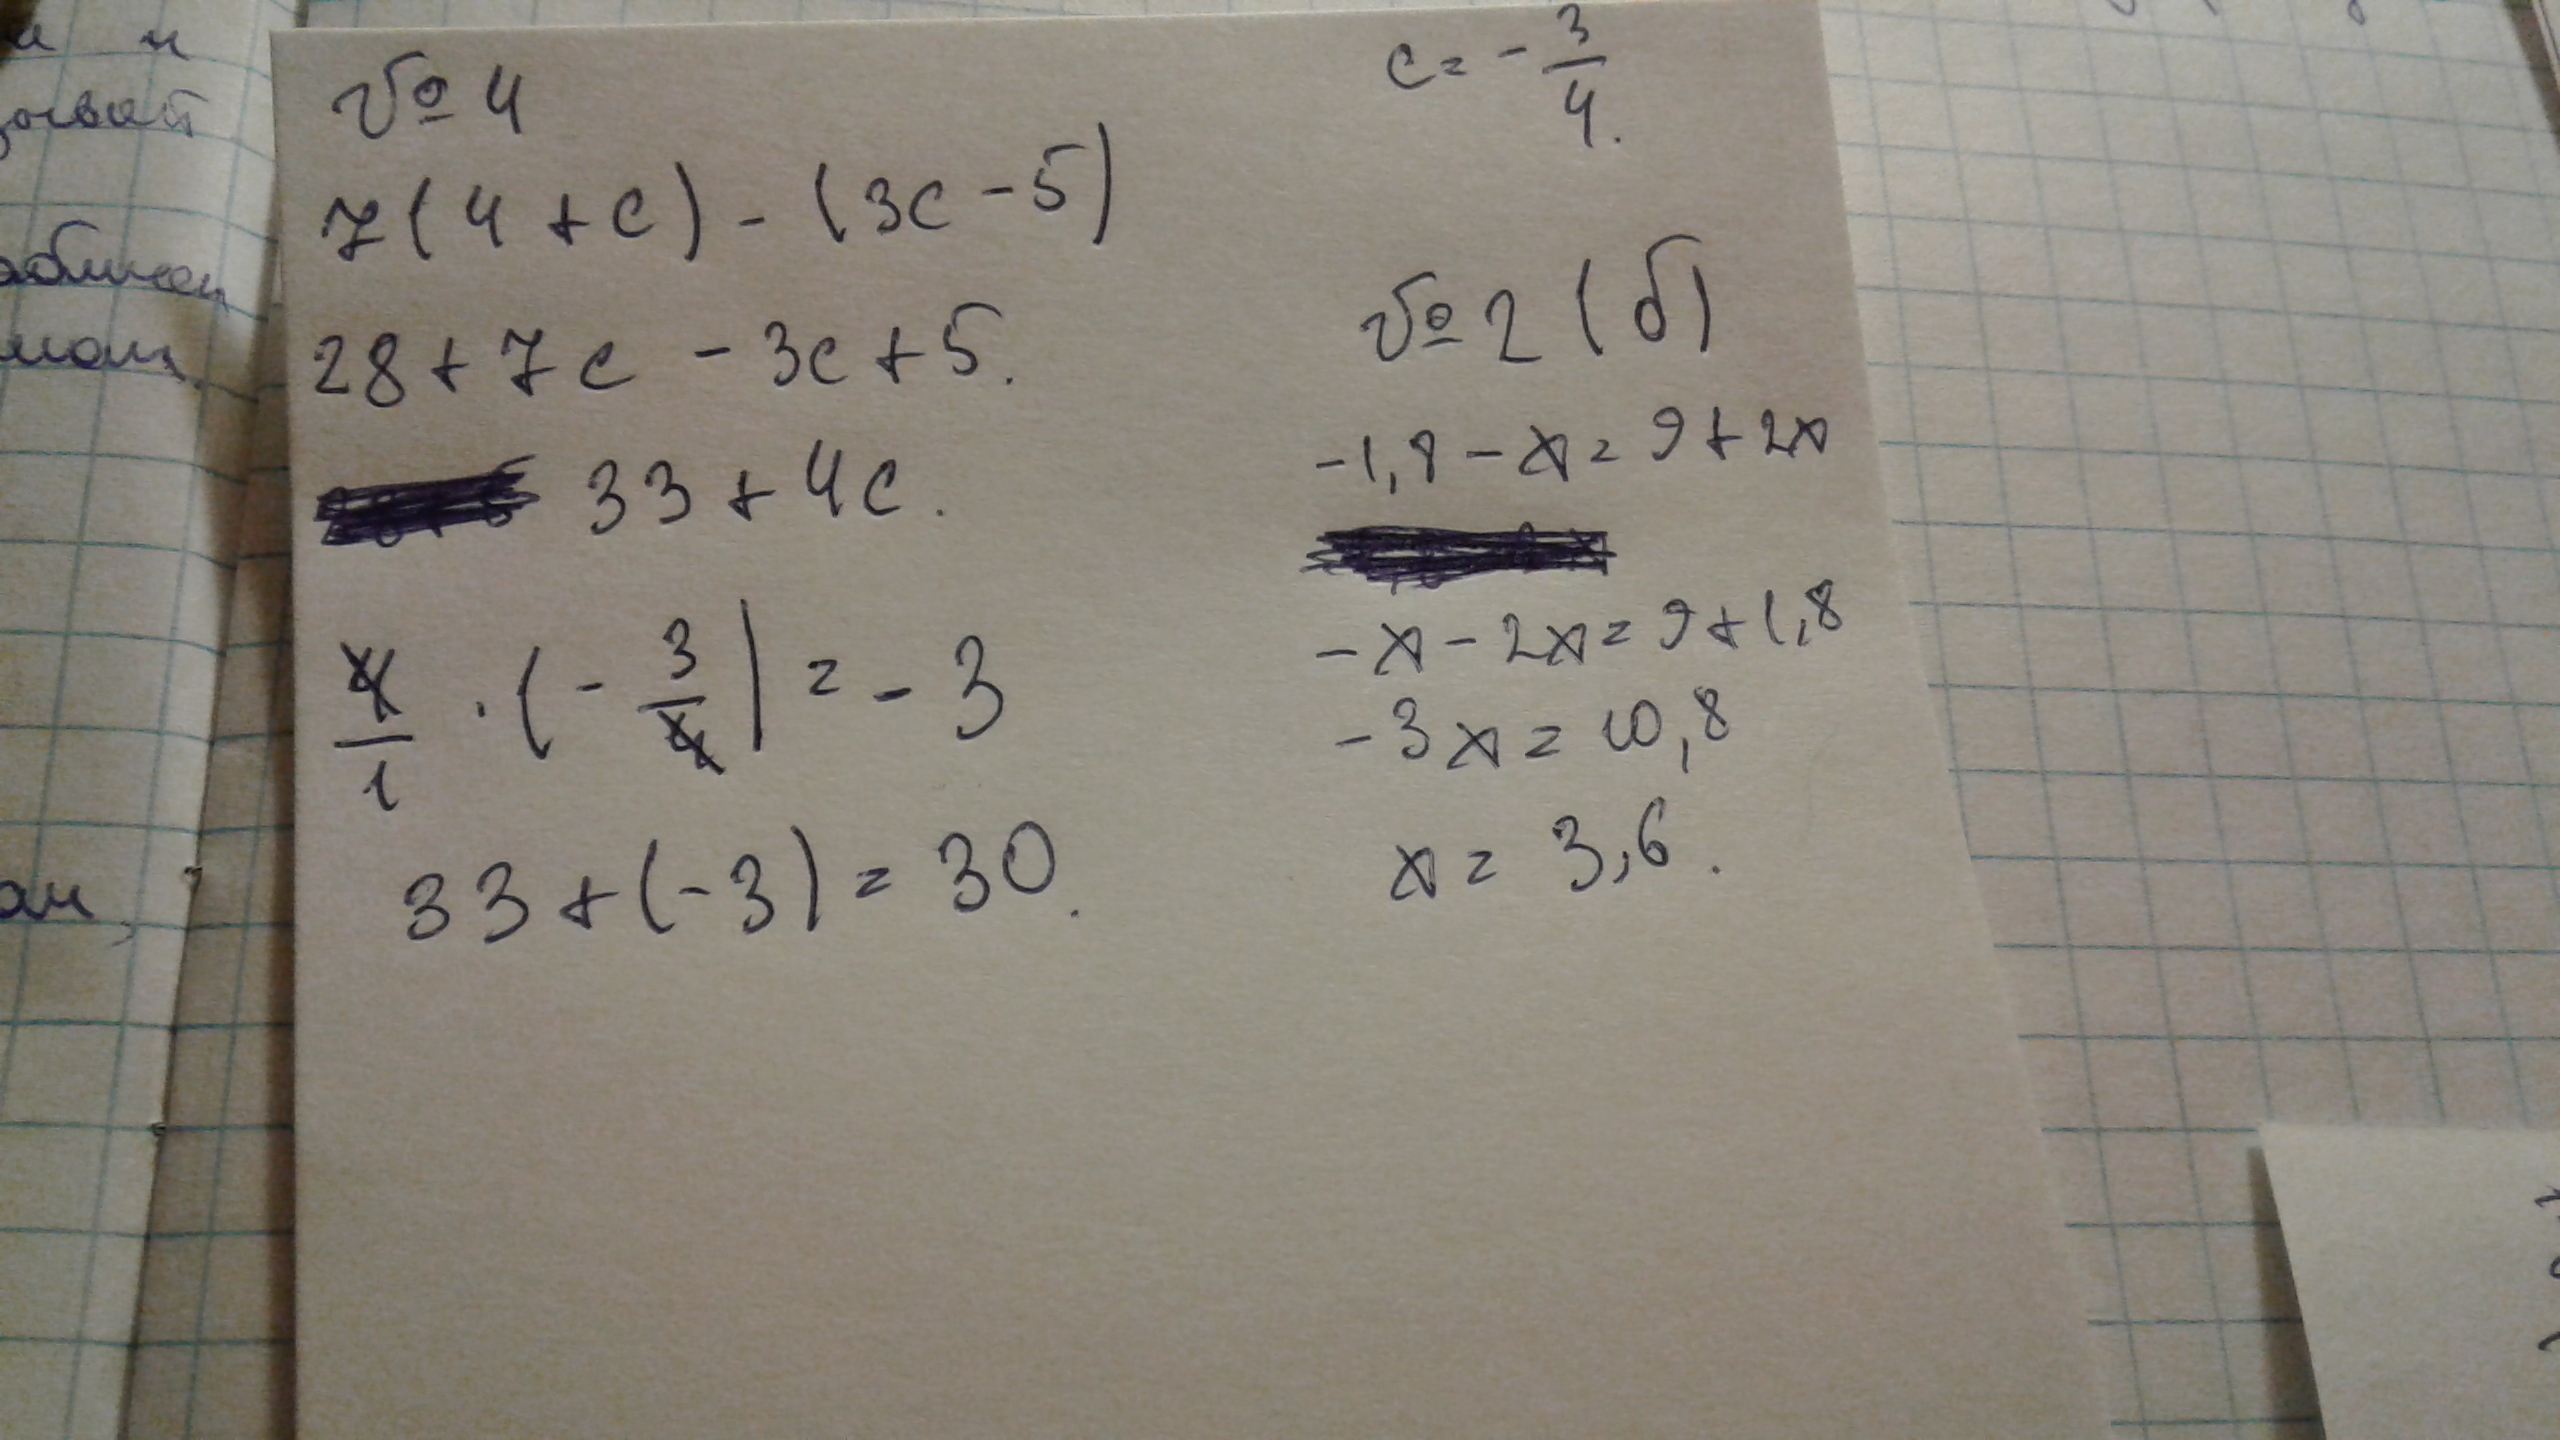 № 4
7(4+c)-(3c-5)
28+7c-3c+5.
33+4c.
4/1 · (-3/4) = -3
33+(-3)=30.
c=-3/4.
№ 2 (б)
-1,8-x=9+2x
-x-2x=9+1,8
-3x=10,8
x=3,6.